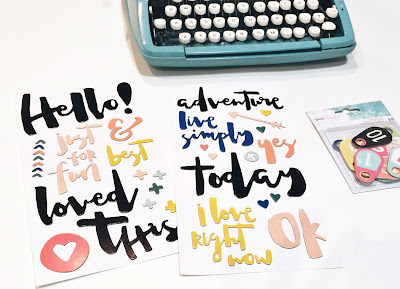 Hello!
just &
for
fun best
loved
this
adventure
live
simply yes
today
i love
right
now
Ok